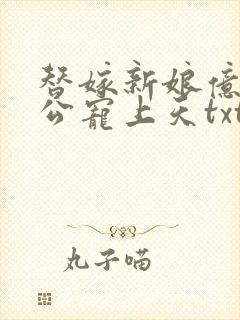 替嫁新娘億
公寵上天txt
丸子喵